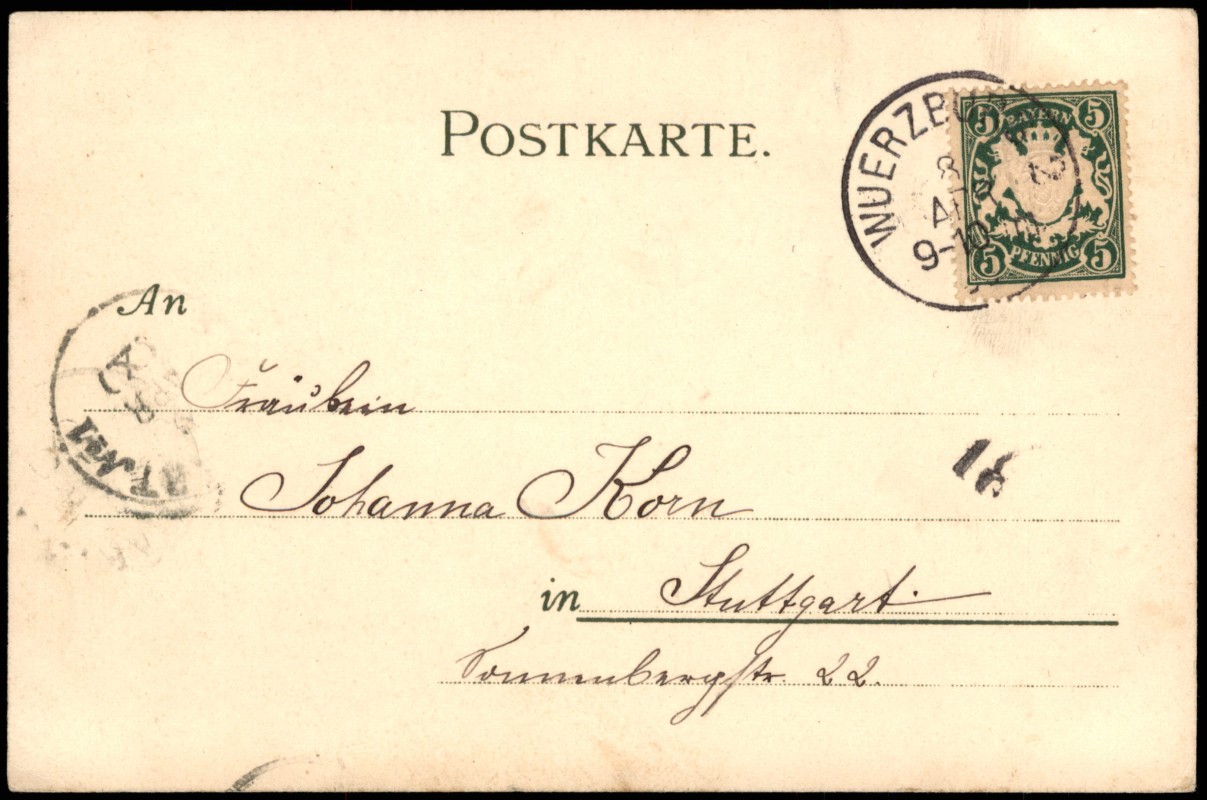 POSTKARTE.
WUERZBU
8
9-10
5 BAYERN 5
5 PFENNIG 5
An
Fräulein
Johanna Korn
in Stuttgart.
Sonnenbergstr. 22.